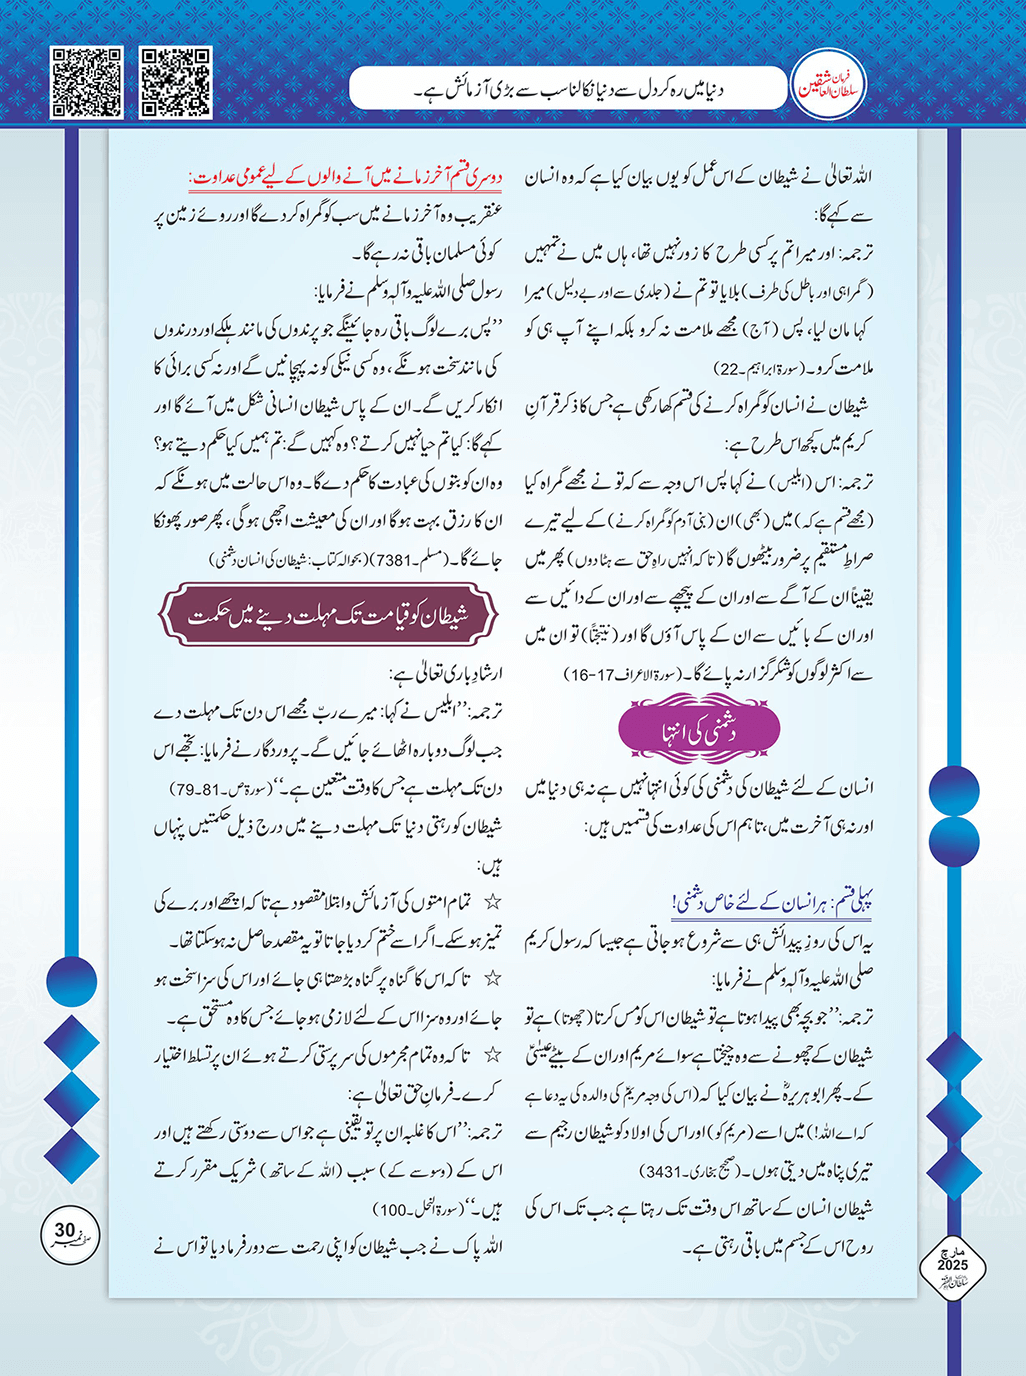 دنیا میں رہ کر دل سے دنیا نکالنا سب سے بڑی آزمائش ہے۔
فرمان
سلطان العاشقین
اللہ تعالیٰ نے شیطان کے اس عمل کو یوں بیان کیا ہے کہ وہ انسان
سے کہے گا:
ترجمہ: اور میرا تم پر کسی طرح کا زور نہیں تھا، ہاں میں نے تمہیں
(گمراہی اور باطل کی طرف) بلایا تو تم نے (جلدی سے اور بے دلیل) میرا
کہا مان لیا، پس (آج) مجھے ملامت نہ کرو بلکہ اپنے آپ ہی کو
ملامت کرو۔ (سورۃ ابراہیم۔22)
شیطان نے انسان کو گمراہ کرنے کی قسم کھا رکھی ہے جس کا ذکر قرآنِ
کریم میں کچھ اس طرح ہے:
ترجمہ: اس (ابلیس) نے کہا پس اس وجہ سے کہ تو نے مجھے گمراہ کیا
(مجھے قسم ہے کہ) میں (بھی) ان (بنی آدم کو گمراہ کرنے) کے لیے تیرے
صراطِ مستقیم پر ضرور بیٹھوں گا (تاکہ انہیں راہِ حق سے ہٹا دوں) پھر میں
یقیناً ان کے آگے سے اور ان کے پیچھے سے اور ان کے دائیں سے
اور ان کے بائیں سے ان کے پاس آؤں گا اور (نتیجتاً) تو ان میں
سے اکثر لوگوں کو شکر گزار نہ پائے گا۔ (سورۃ الاعراف 17-16)
دشمنی کی انتہا
انسان کے لئے شیطان کی دشمنی کی کوئی انتہا نہیں ہے نہ ہی دنیا میں
اور نہ ہی آخرت میں، تاہم اس کی عداوت کی قسمیں ہیں:
پہلی قسم: ہر انسان کے لئے خاص دشمنی!
یہ اس کی روزِ پیدائش ہی سے شروع ہو جاتی ہے جیسا کہ رسول کریم
صلی اللہ علیہ وآلہٖ وسلم نے فرمایا:
ترجمہ:’’جو بچہ بھی پیدا ہوتا ہے تو شیطان اس کو مس کرتا (چھوتا) ہے تو
شیطان کے چھونے سے وہ چیختا ہے سوائے مریم اور ان کے بیٹے عیسیٰؑ
کے۔ پھر ابوہریرہؓ نے بیان کیا کہ (اس کی وجہ مریمؑ کی والدہ کی یہ دعا ہے
کہ اے اللہ!) میں اسے (مریم کو) اور اس کی اولاد کو شیطان رجیم سے
تیری پناہ میں دیتی ہوں۔ (صحیح بخاری۔3431)
شیطان انسان کے ساتھ اس وقت تک رہتا ہے جب تک اس کی
روح اس کے جسم میں باقی رہتی ہے۔
دوسری قسم آخر زمانے میں آنے والوں کے لیے عمومی عداوت:
عنقریب وہ آخر زمانے میں سب کو گمراہ کر دے گا اور روئے زمین پر
کوئی مسلمان باقی نہ رہے گا۔
رسول صلی اللہ علیہ وآلہٖ وسلم نے فرمایا:
’’پس برے لوگ باقی رہ جائینگے جو پرندوں کی مانند ہلکے اور درندوں
کی مانند سخت ہونگے، وہ کسی نیکی کو نہ پہچانیں گے اور نہ کسی برائی کا
انکار کریں گے۔ ان کے پاس شیطان انسانی شکل میں آئے گا اور
کہے گا: کیا تم حیا نہیں کرتے؟ وہ کہیں گے: تم ہمیں کیا حکم دیتے ہو؟
وہ ان کو بتوں کی عبادت کا حکم دے گا۔ وہ اس حالت میں ہونگے کہ
ان کا رزق بہت ہوگا اور ان کی معیشت اچھی ہوگی، پھر صور پھونکا
جائے گا۔ (مسلم۔7381) (بحوالہ کتاب: شیطان کی انسان دشمنی)
شیطان کو قیامت تک مہلت دینے میں حکمت
ارشادِ باری تعالیٰ ہے:
ترجمہ:’’ابلیس نے کہا: میرے ربّ مجھے اس دن تک مہلت دے
جب لوگ دوبارہ اٹھائے جائیں گے۔ پروردگار نے فرمایا: تجھے اس
دن تک مہلت ہے جس کا وقت متعین ہے۔‘‘ (سورۃ ص۔81۔79)
شیطان کو رہتی دنیا تک مہلت دینے میں درج ذیل حکمتیں پنہاں
ہیں:
☆ تمام امتوں کی آزمائش و ابتلا مقصود ہے تاکہ اچھے اور برے کی
تمیز ہو سکے۔ اگر اسے ختم کر دیا جاتا تو یہ مقصد حاصل نہ ہو سکتا تھا۔
☆ تاکہ اس کا گناہ پر گناہ بڑھتا ہی جائے اور اس کی سزا سخت ہو
جائے اور وہ سزا اس کے لئے لازمی ہو جائے جس کا وہ مستحق ہے۔
☆ تاکہ وہ تمام مجرموں کی سرپرستی کرتے ہوئے ان پر تسلط اختیار
کرے۔ فرمانِ حق تعالیٰ ہے:
ترجمہ:’’اس کا غلبہ ان پر تو یقینی ہے جو اس سے دوستی رکھتے ہیں اور
اس کے (وسوسے کے) سبب (اللہ کے ساتھ) شریک مقرر کرتے
ہیں۔‘‘ (سورۃ النحل۔100)
اللہ پاک نے جب شیطان کو اپنی رحمت سے دور فرما دیا تو اس نے
30
صفحہ نمبر
مارچ
2025